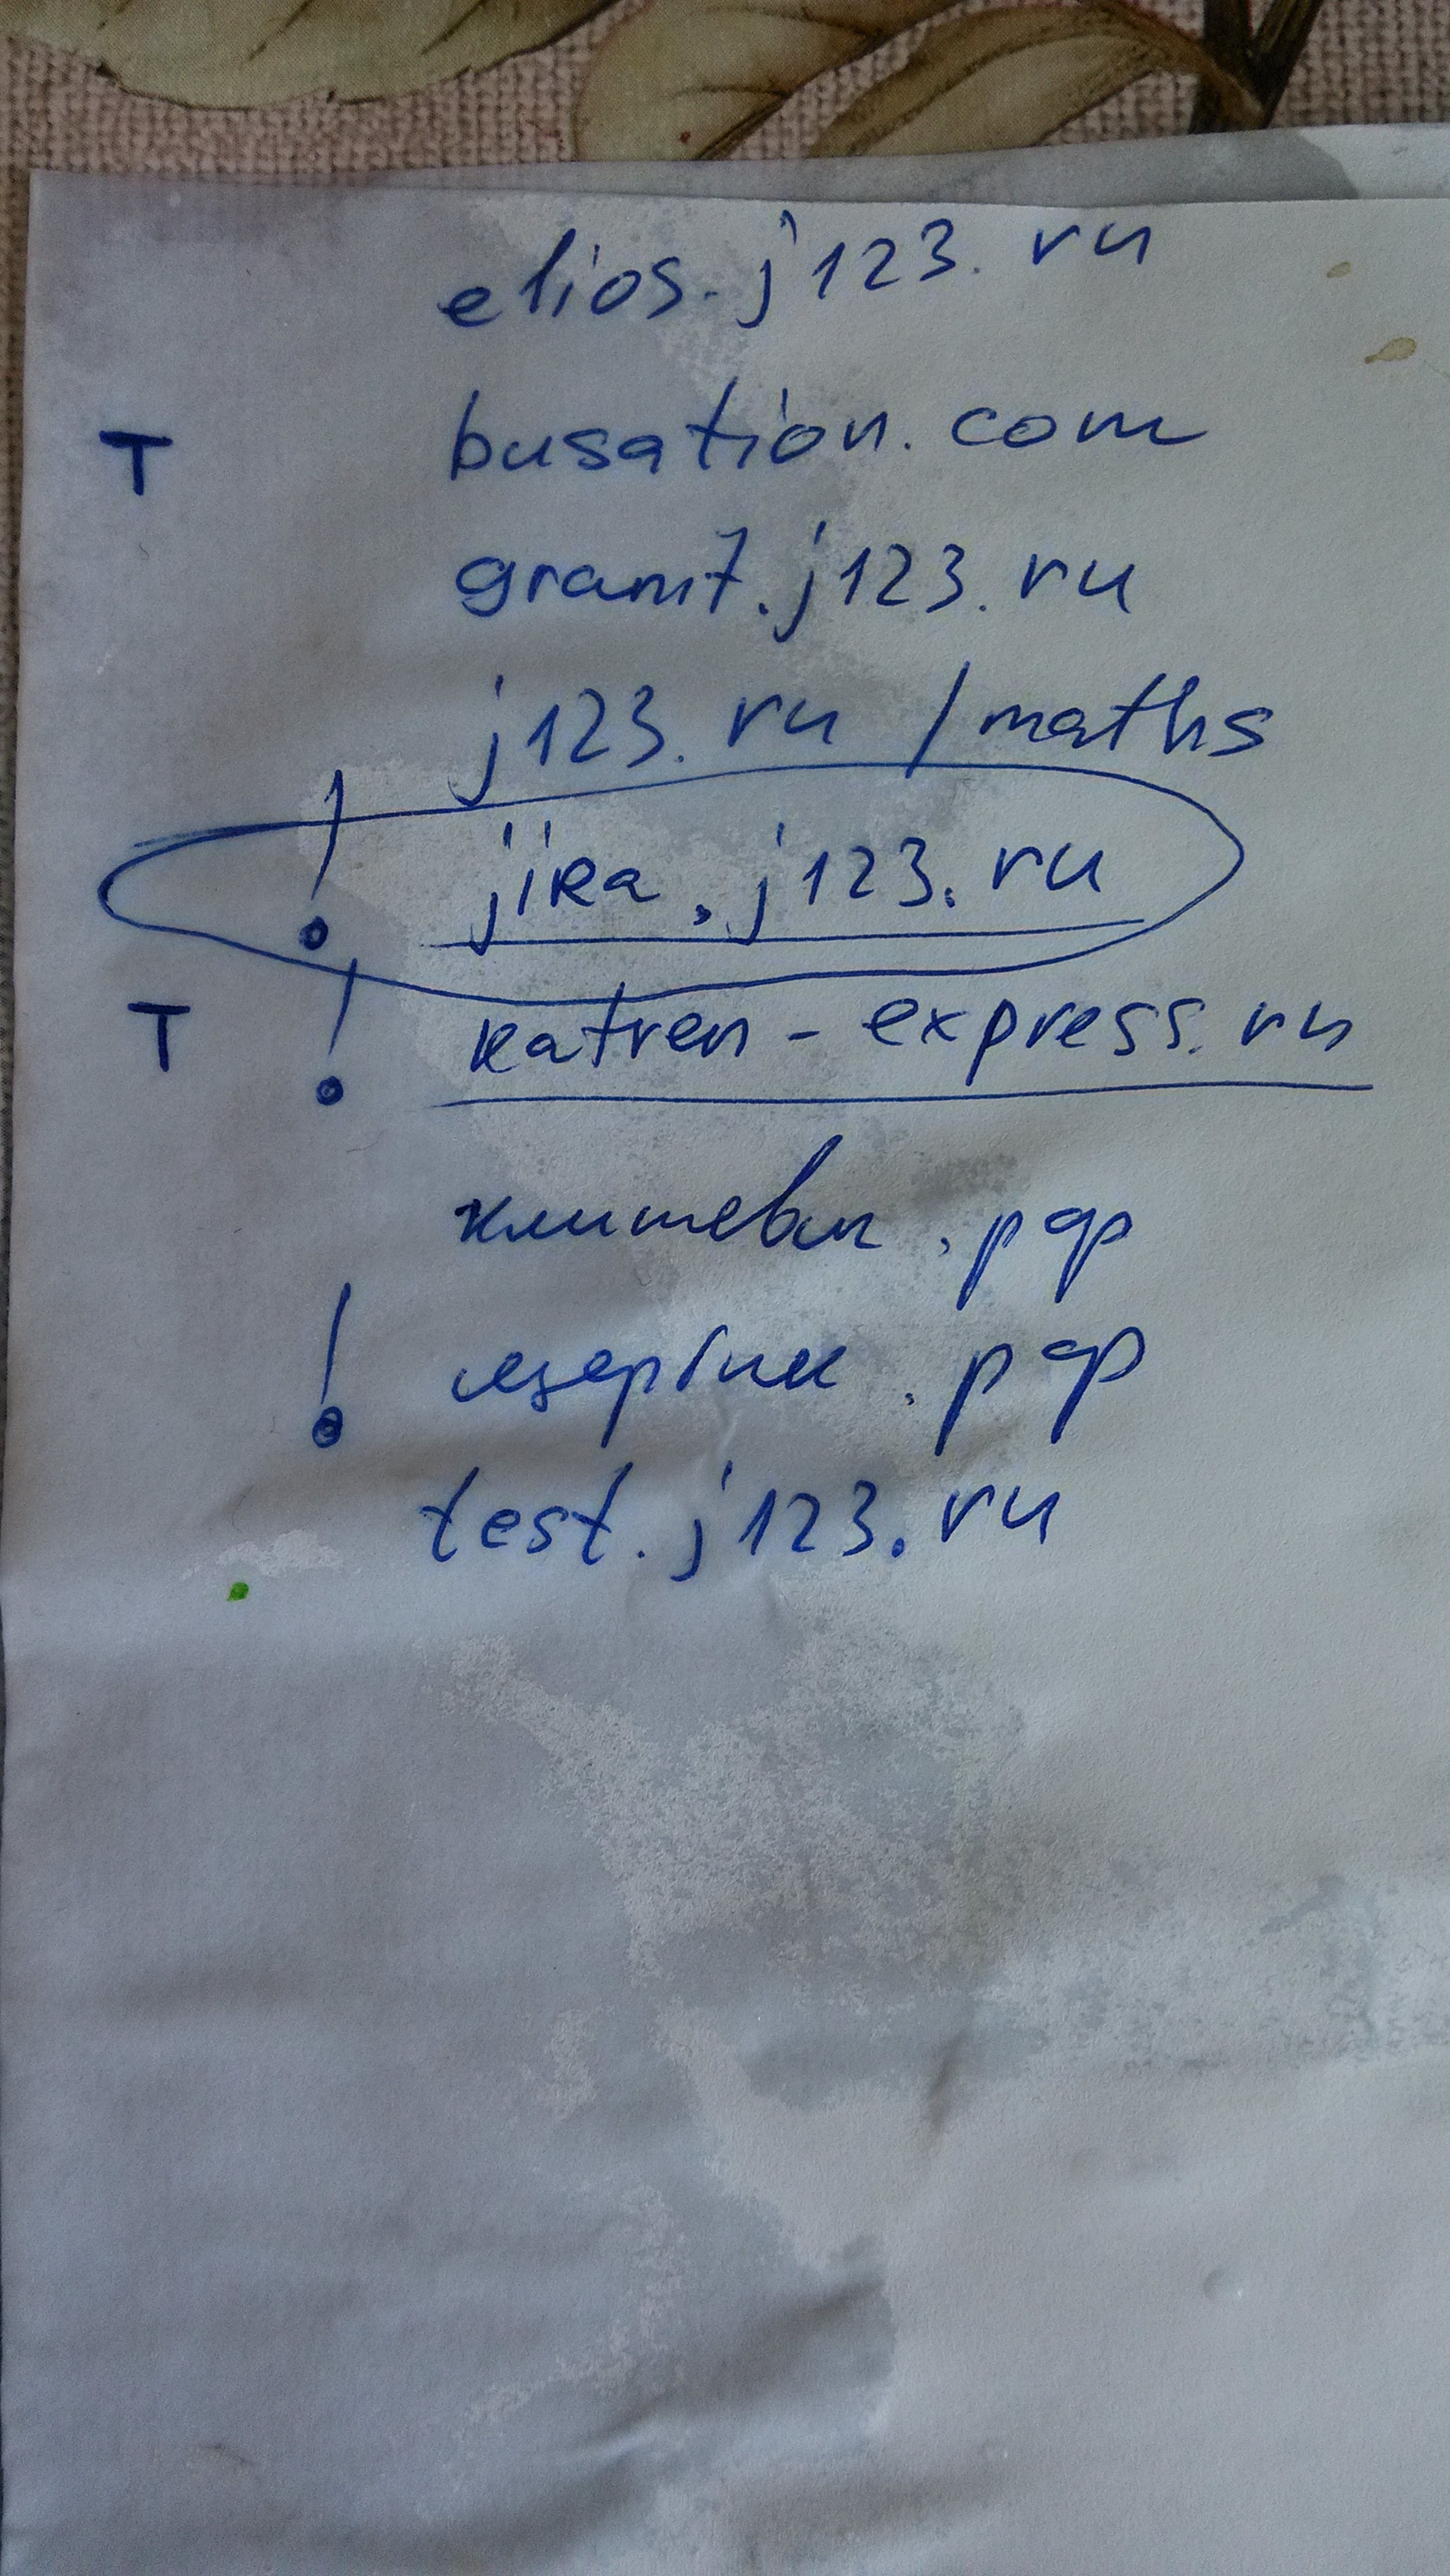 elios.j123.ru
T busation.com
granit.j123.ru
j123.ru/maths
! jira.j123.ru
T ! katren-express.ru
.рф
! .рф
test.j123.ru